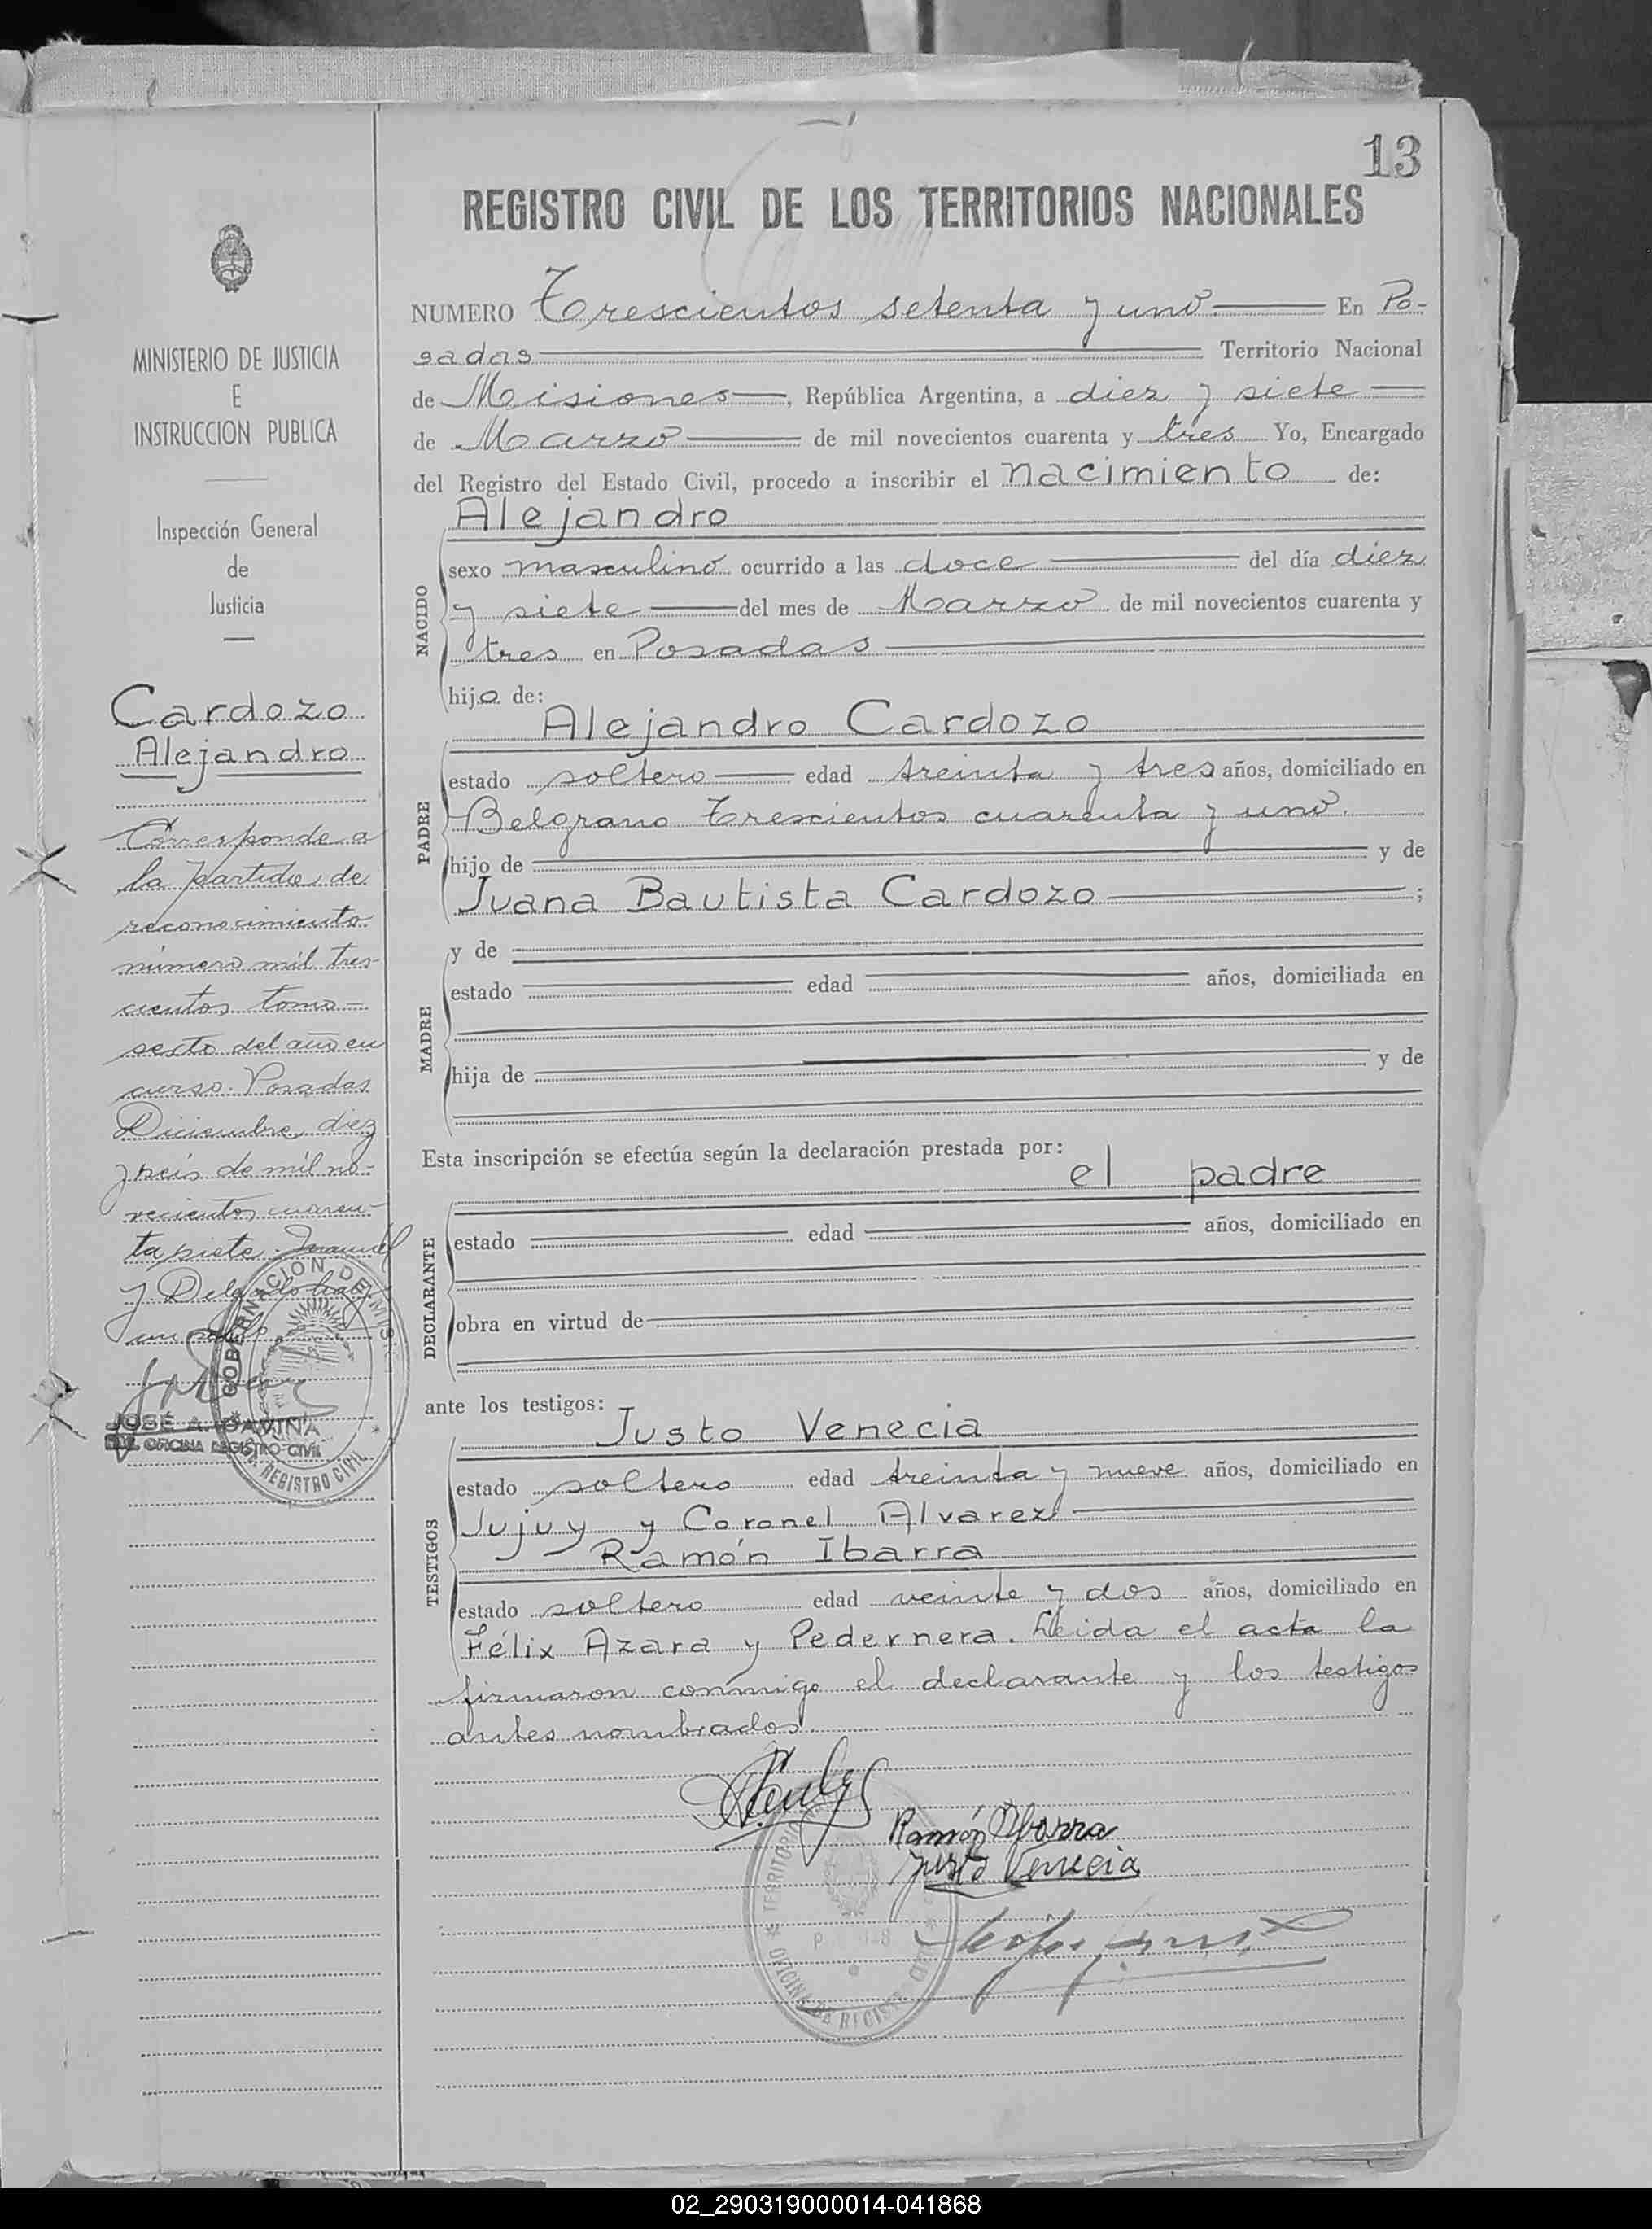 13
REGISTRO CIVIL DE LOS TERRITORIOS NACIONALES
MINISTERIO DE JUSTICIA
E
INSTRUCCION PUBLICA
Inspección General
de
Justicia
Cardozo
Alejandro
Corresponde a
la partida de
reconocimiento
número mil tres-
cientos tomo
sexto del año en
curso. Posadas
Diciembre diez
y seis de mil no-
vecientos cuaren-
ta siete.
J. Delgado
GOBERNACIÓN DE MISIONES
JOSÉ A. GAVIÑA
OFICINA REGISTRO CIVIL
REGISTRO CIVIL
NUMERO Trescientos setenta y uno. En Po-
sadas Territorio Nacional
de Misiones, República Argentina, a diez y siete
de Marzo de mil novecientos cuarenta y tres Yo, Encargado
del Registro del Estado Civil, procedo a inscribir el nacimiento de:
Alejandro
NACIDO
sexo masculino ocurrido a las doce del día diez
y siete del mes de Marzo de mil novecientos cuarenta y
tres en Posadas
hijo de:
Alejandro Cardozo
PADRE
estado soltero edad treinta y tres años, domiciliado en
Belgrano Trescientos cuarenta y uno.
hijo de y de
Juana Bautista Cardozo ;
MADRE
y de
estado edad años, domiciliada en
hija de y de
Esta inscripción se efectúa según la declaración prestada por:
el padre
DECLARANTE
estado edad años, domiciliado en
obra en virtud de
ante los testigos:
Justo Venecia
TESTIGOS
estado soltero edad treinta y nueve años, domiciliado en
Jujuy y Coronel Alvarez
Ramón Ibarra
estado soltero edad veinte y dos años, domiciliado en
Félix Azara y Pedernera. Leida el acta la
firmaron conmigo el declarante y los testigos
antes nombrados.
Ramón Ybarra
Justo Venecia
TERRITORIO
OFICINA DE REGISTRO CIVIL
02_290319000014-041868